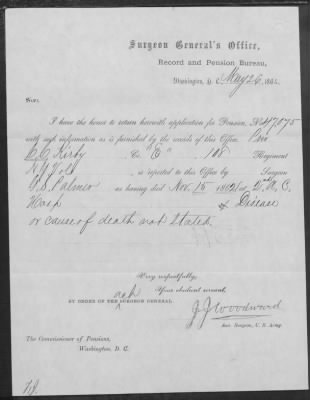 Surgeon General's Office,
Record and Pension Bureau,
Washington, D. C. May 26, 1864.
SIR:
I have the honor to return herewith application for Pension, No 47075
with such information as is furnished by the records of this Office.
C. G. Kirby Co. "E" 108 Regiment
N.Y. Vols is reported to this Office by Surgeon
Palmer as having died Nov. 15 1862
Hosp of Disease
or cause of death not stated.
Very respectfully,
Your obedient servant,
BY ORDER OF THE SURGEON GENERAL:
J. J. Woodward
Ass. Surgeon, U. S. Army.
The Commissioner of Pensions,
Washington, D. C.